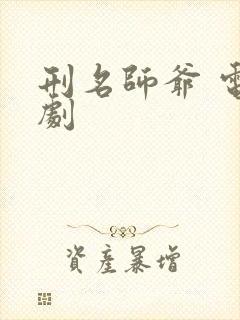 刑名師爺 電
劇
資產暴增